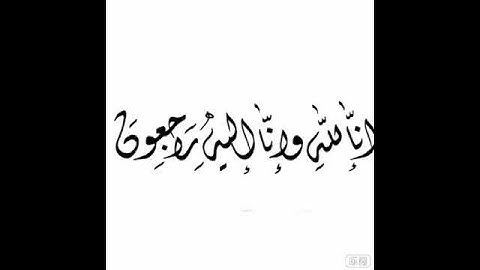 إنَّا لِلَّهِ وَإِنَّا إِلَيْهِ رَاجِعُونَ